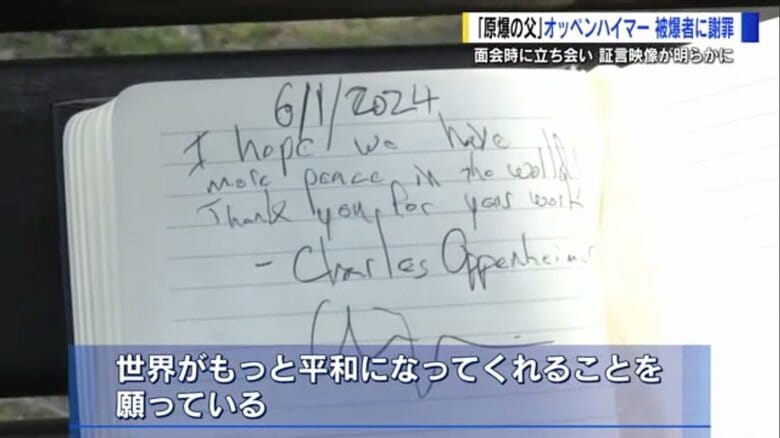 「原爆の父」オッペンハイマー 被爆者に謝罪
面会時に立ち会い 証言映像が明らかに
6/1/2024
I hope we have
more peace in the world!
Thank you for your work
- Charles Oppenheimer
世界がもっと平和になってくれることを
願っている